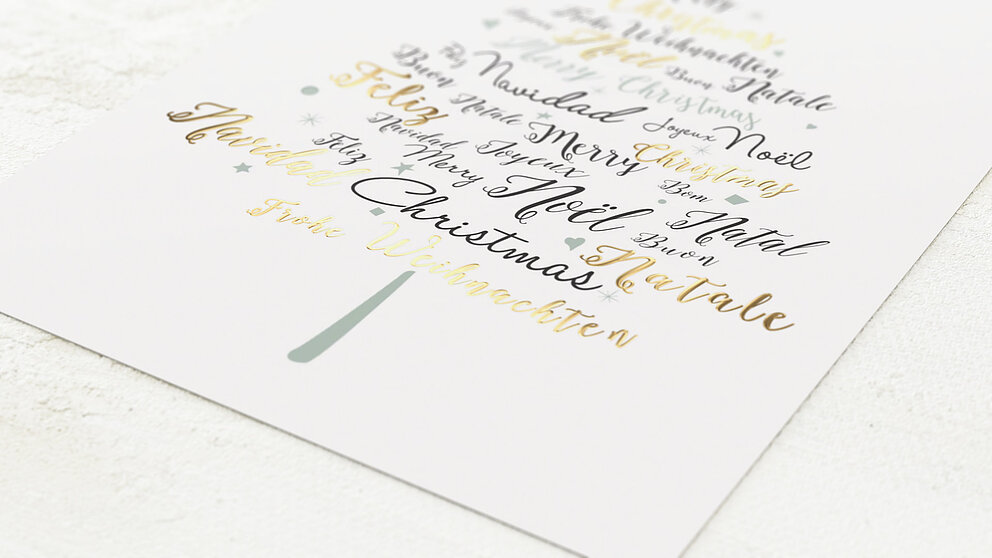 Christmas
Frohe Weihnachten
Noël Buon Natale
Merry Christmas
Feliz Navidad Joyeux Noël
Buon Natale Merry Christmas
Feliz Navidad Joyeux Noël Bom Natal
Feliz Merry Christmas Buon Natale
Navidad
Frohe Weihnachten